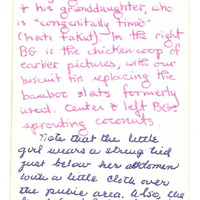 & his granddaughter, who
is "congenitally timid"
(hati takut). In the right
BG is the chicken coop of
earlier pictures, with our
biscuit tin replacing the
bamboo slats formerly
used. Center & left BG:
sprouting coconuts.
Note that the little
girl wears a string tied
just below her abdomen
with a little cloth over
the pubic area. Also, the